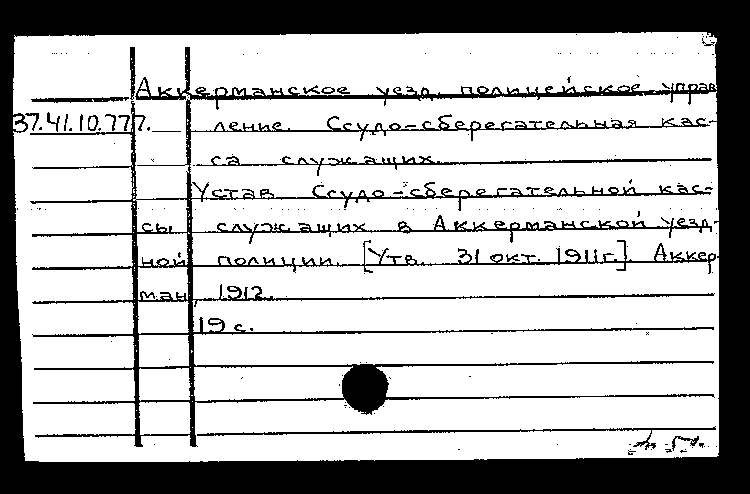 Аккерманское уезд. полицейское управ
37.41.10.777. ление. Ссудо-сберегательная кас-
са служащих.
Устав Ссудо-сберегательной кас-
сы служащих в Аккерманской уезд-
ной полиции. [Утв. 31 окт. 1911г.]. Аккер-
ман, 1912.
19 с.